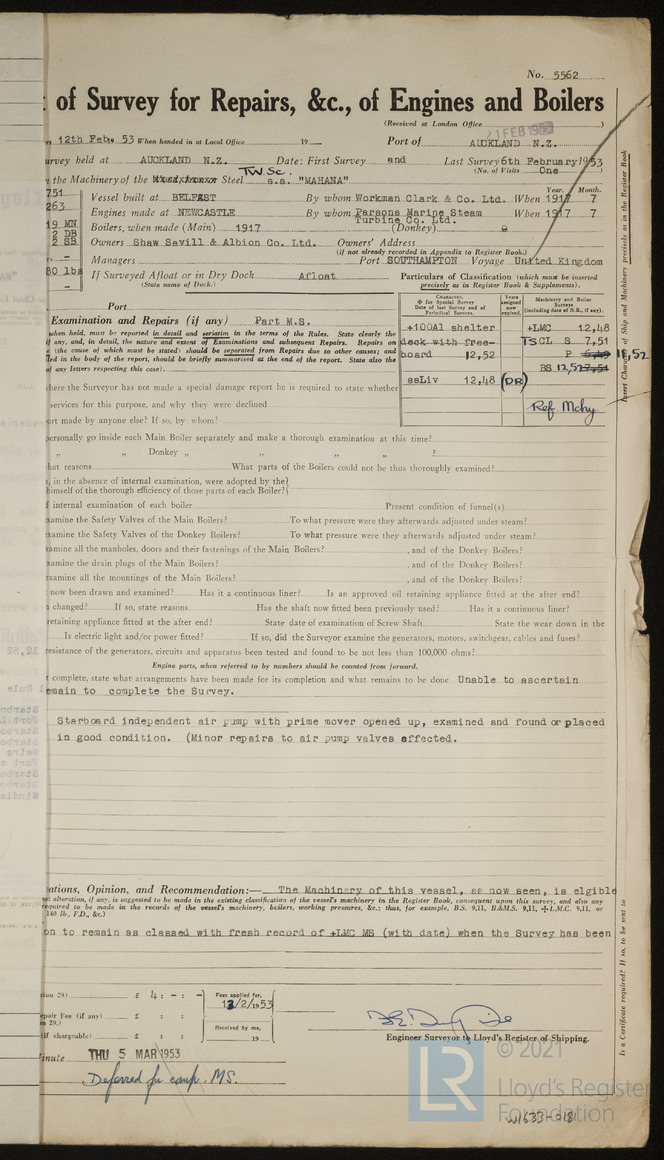 No. 5562
of Survey for Repairs, &c., of Engines and Boilers
(Received at London Office
21 FEB 1953
12th Feb. 53 When handed in at Local Office 19
Port of AUCKLAND N.Z.
urvey held at AUCKLAND N.Z. Date: First Survey and Last Survey 6th February 1953
(No. of Visits One )
TW.Sc.
the Machinery of the Steel s.s. "MAHANA"
751
263
19 MN
2 DB
2 SB
80 lbs
Year. Month.
Vessel built at BELFAST By whom Workman Clark & Co. Ltd. When 1917 7
Engines made at NEWCASTLE By whom Parsons Marine Steam Turbine Co. Ltd. When 1917 7
Boilers, when made (Main) 1917 (Donkey)
Owners Shaw Savill & Albion Co. Ltd. Owners' Address
(if not already recorded in Appendix to Register Book.)
Managers Port SOUTHAMPTON Voyage United Kingdom
If Surveyed Afloat or in Dry Dock Afloat
(State name of Dock.)
Particulars of Classification (which must be inserted
precisely as in Register Book & Supplements).
CHARACTER.
✠ for Special Survey
Date of last Survey and of
Periodical Surveys.
Years
assigned
now
expired.
Machinery and Boiler
Surveys
(including date of N.B., if any).
+100A1 shelter
deck with free-
board 12,52
ssLiv 12,48 (DR)
+LMC 12,48
TS CL S 7,51
P 6,49 11,52
BS 12,52 7,51
Ref. Mchy
Port
Examination and Repairs (if any) Part M.S.
when held, must be reported in detail and seriatim in the terms of the Rules. State clearly the
if any, and, in detail, the nature and extent of Examinations and subsequent Repairs. Repairs on
(the cause of which must be stated) should be separated from Repairs due to other causes; and
led in the body of the report, should be briefly summarised at the end of the report. State also the
of any letters respecting this case).
here the Surveyor has not made a special damage report he is required to state whether
services for this purpose, and why they were declined
ort made by anyone else? If so, by whom?
personally go inside each Main Boiler separately and make a thorough examination at this time?
„ „ Donkey „ „ „ „ „ ?
hat reasons What parts of the Boilers could not be thus thoroughly examined?
, in the absence of internal examination, were adopted by the
himself of the thorough efficiency of those parts of each Boiler?
f internal examination of each boiler Present condition of funnel(s)
xamine the Safety Valves of the Main Boilers? To what pressure were they afterwards adjusted under steam?
xamine the Safety Valves of the Donkey Boilers? To what pressure were they afterwards adjusted under steam?
xamine all the manholes, doors and their fastenings of the Main Boilers? , and of the Donkey Boilers?
xamine the drain plugs of the Main Boilers? , and of the Donkey Boilers?
xamine all the mountings of the Main Boilers? , and of the Donkey Boilers?
now been drawn and examined? Has it a continuous liner? Is an approved oil retaining appliance fitted at the after end?
changed? If so, state reasons Has the shaft now fitted been previously used? Has it a continuous liner?
retaining appliance fitted at the after end? State date of examination of Screw Shaft State the wear down in the
Is electric light and/or power fitted? If so, did the Surveyor examine the generators, motors, switchgear, cables and fuses?
resistance of the generators, circuits and apparatus been tested and found to be not less than 100,000 ohms?
Engine parts, when referred to by numbers should be counted from forward.
t complete, state what arrangements have been made for its completion and what remains to be done Unable to ascertain
emain to complete the Survey.
Starboard independent air pump with prime mover opened up, examined and found or placed
in good condition. (Minor repairs to air pump valves affected.
ations, Opinion, and Recommendation:— The Machinery of this vessel, as now seen, is elgible
t alteration, if any, is suggested to be made in the existing classification of the vessel's machinery in the Register Book, consequent upon this survey, and also any
equired to be made in the records of the vessel's machinery, boilers, working pressures, &c.; thus, for example, B.S. 9,11, B.&M.S. 9,11, ✠L.M.C. 9,11, or
140 lb., F.D., &c.)
on to remain as classed with fresh record of +LMC MS (with date) when the Survey has been
tion 29) £ 4 : - : -
epair Fee (if any) £ : :
n 29.)
(if chargeable) £ : :
Fees applied for,
13/2/1953
Received by me,
19
Engineer Surveyor to Lloyd's Register of Shipping.
inute THU 5 MAR 1953
Deferred for comp. MS.
Insert Character of Ship and Machinery precisely as in the Register Book
Is a Certificate required? If so, to be sent to
LR
© 2021
Lloyd's Register
Foundation
W1633-0181